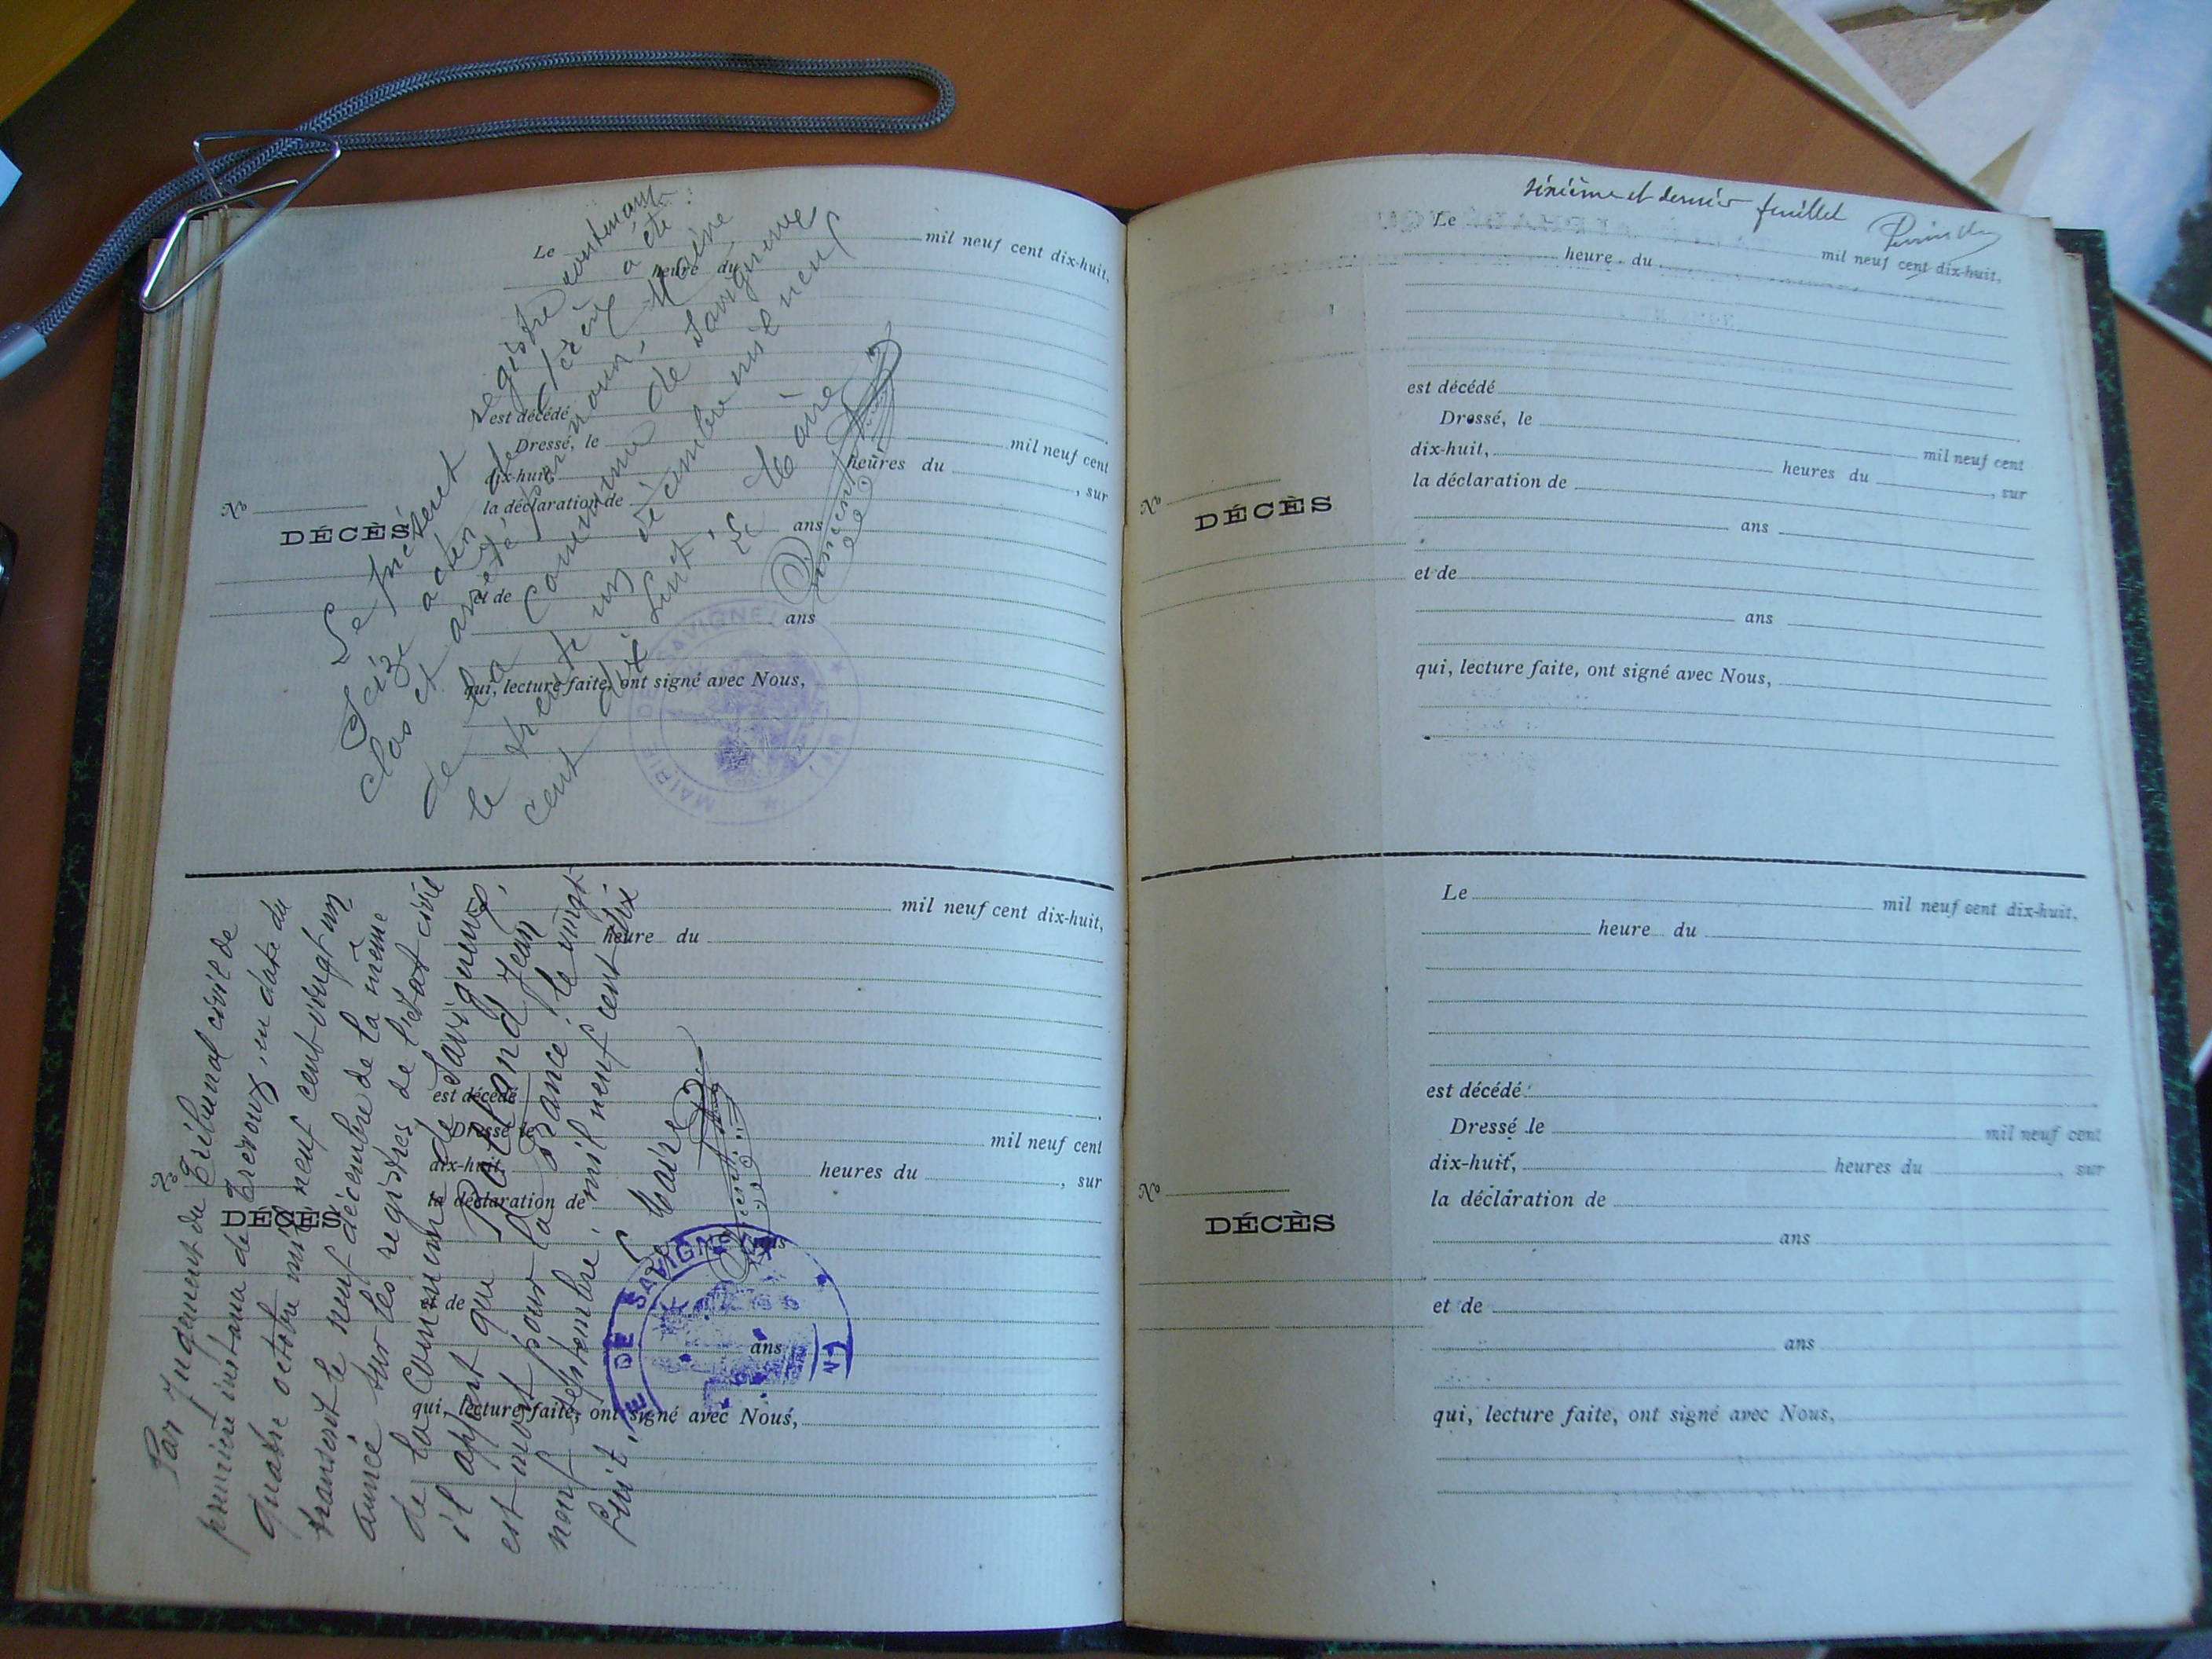 Le présent registre contenant
seize actes de décès, a été
clos et arrêté par nous, Maire
de la Commune de Savigneux
le trente un décembre mil neuf
cent dix huit. Le Maire
MAIRIE DE SAVIGNEUX
Le mil neuf cent dix-huit,
heure du
est décédé
Dressé, le mil neuf cent
dix-huit, heures du , sur
la déclaration de
Nº
DÉCÈS
ans
et de
ans
qui, lecture faite, ont signé avec Nous,
Par Jugement du Tribunal civil de
première instance de Trévoux, en date du
quatre octobre mil neuf cent vingt un
transcrit le neuf décembre de la même
année sur les registres de l'état civil
de la Commune de Savigneux,
il appert que Rolland Jean
est mort pour la France le vingt
neuf septembre mil neuf cent dix
huit. Le Maire
MAIRIE DE SAVIGNEUX
mil neuf cent dix-huit,
heure du
est décédé
Dressé le mil neuf cent
dix-huit, heures du , sur
la déclaration de
Nº
DÉCÈS
ans
et de
ans
qui, lecture faite, ont signé avec Nous,
sixième et dernier feuillet
Le mil neuf cent dix-huit,
heure du
est décédé
Dressé, le mil neuf cent
dix-huit, heures du , sur
la déclaration de
Nº
DÉCÈS
ans
et de
ans
qui, lecture faite, ont signé avec Nous,
Le mil neuf cent dix-huit,
heure du
est décédé
Dressé le mil neuf cent
dix-huit, heures du , sur
la déclaration de
Nº
DÉCÈS
ans
et de
ans
qui, lecture faite, ont signé avec Nous,